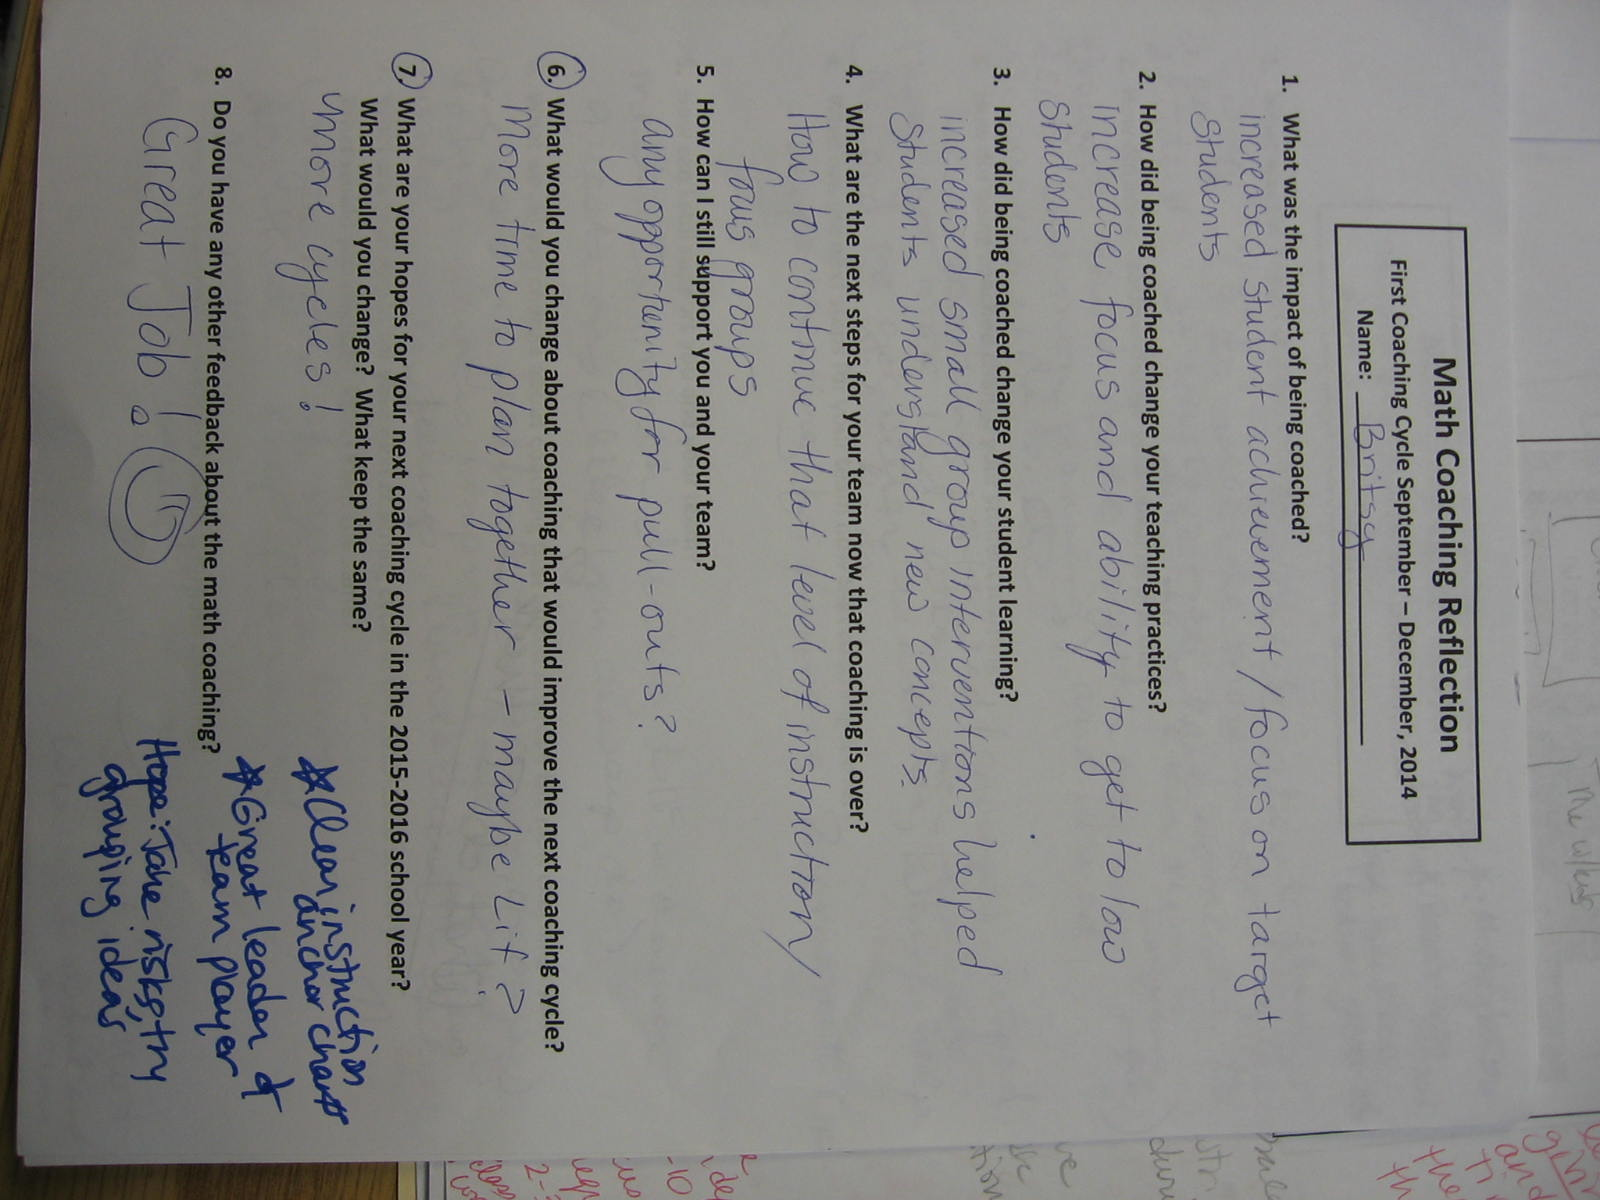 Math Coaching Reflection
First Coaching Cycle September – December, 2014
Name: Britsy
1. What was the impact of being coached?
increased student achievement / focus on target
students
2. How did being coached change your teaching practices?
increase focus and ability to get to low
students
3. How did being coached change your student learning?
increased small group interventions helped
students understand new concepts.
4. What are the next steps for your team now that coaching is over?
How to continue that level of instruction/
focus groups
5. How can I still support you and your team?
any opportunity for pull-outs?
6. What would you change about coaching that would improve the next coaching cycle?
More time to plan together – maybe Lit?
7. What are your hopes for your next coaching cycle in the 2015-2016 school year?
What would you change? What keep the same?
more cycles!
8. Do you have any other feedback about the math coaching?
Great Job!
*Clear instruction
anchor charts
*Great leader &
team player
Hope: Take risks, try
grouping ideas